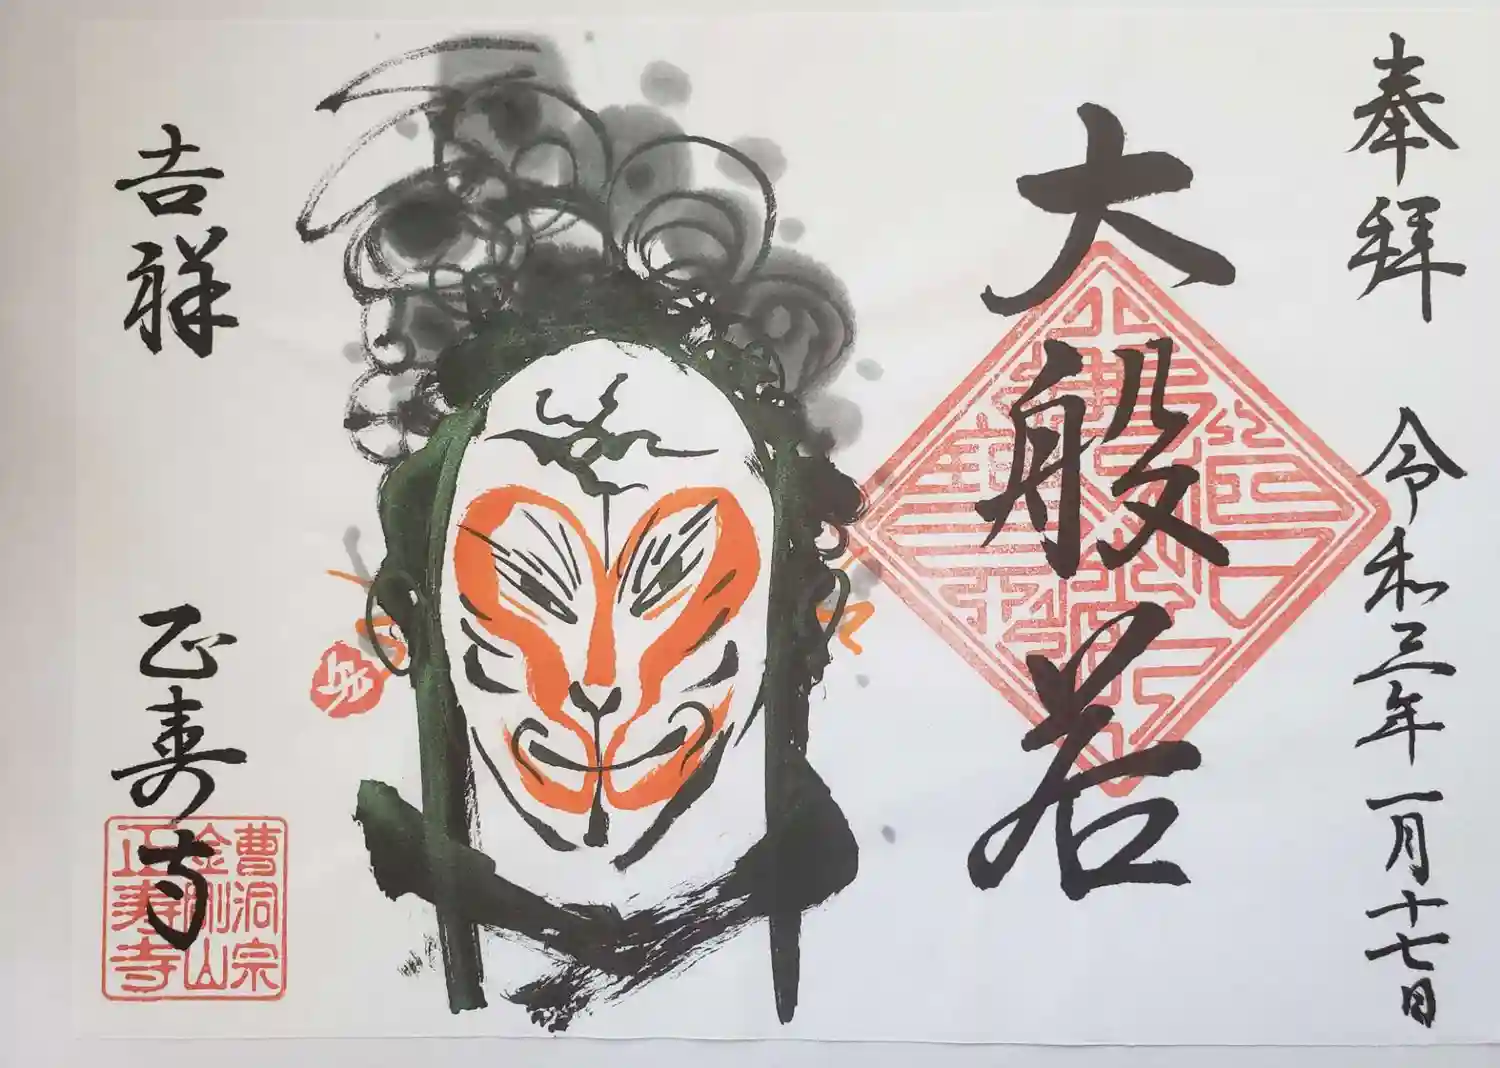 奉拝 令和三年一月十七日
大般若
吉祥 正寿寺
曹洞宗
金剛山
正寿寺